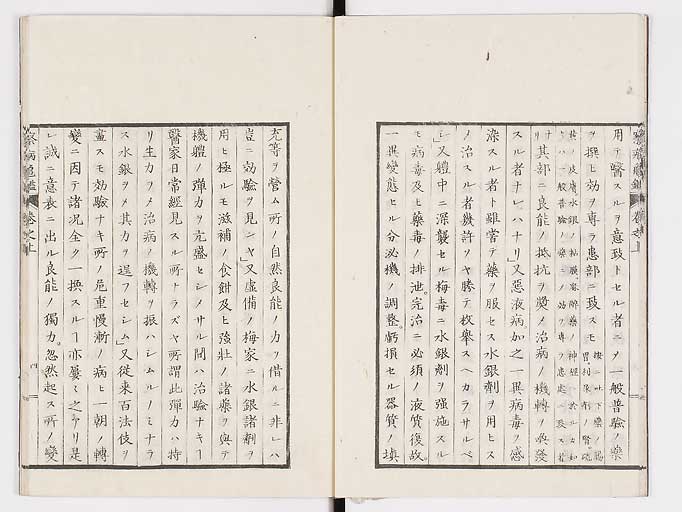 用テ醫スルヲ意致トセル者ニメ一般普驗ノ藥
ヲ撰ヒ効ヲ專ラ患部ニ致スモ
リ其部ニ良能ノ抵抗ヲ奬メ治病ノ機轉ヲ喚發
スル者ナレハナリ」又惡液病加之一異病毒ノ感
染スル者ト雖甞テ藥ヲ服セス水銀劑ヲ用ヒス
ノ治スル者幾許ソヤ勝テ枚舉スヘカラサルベ
シ」又軀中ニ深襲セル梅毒ニ水銀劑ヲ強施スル
モ病毒及ヒ藥毒ノ排泄。完治ニ必須ノ液質復故。
一異變態セル分泌機ノ調整。虧損セル器質ノ填
充等ヲ營ム所ノ自然良能ノ力ヲ借ルニ非レハ
豈ニ効驗ヲ見ンヤ」又虛憊ノ梅家ニ水銀諸劑ヲ
用ヒ極ルモ滋補ノ食餌及ヒ強壯ノ諸藥ヲ與テ
機軆ノ彈力ヲ亢盛セシメサル間ハ治驗ナキヿ
醫家日常經見スル所トラズヤ所謂此彈力ハ特
リ生力ヲメ治病ノ機轉ヲ振ハシムルノミナラ
ス水銀ヲメ其力ヲ逞フセシム」又従来百法伎ヲ
盡スモ効驗ナキ所ノ危重慢漸ノ病ヒ一朝ノ轉
變ニ因テ諸况全ク一換スルヿ亦屢之アリ是
レ誠ニ意表ニ出ル良能ノ獨力。忽然起ス所ノ變
察病龜鑑 卷之上
四